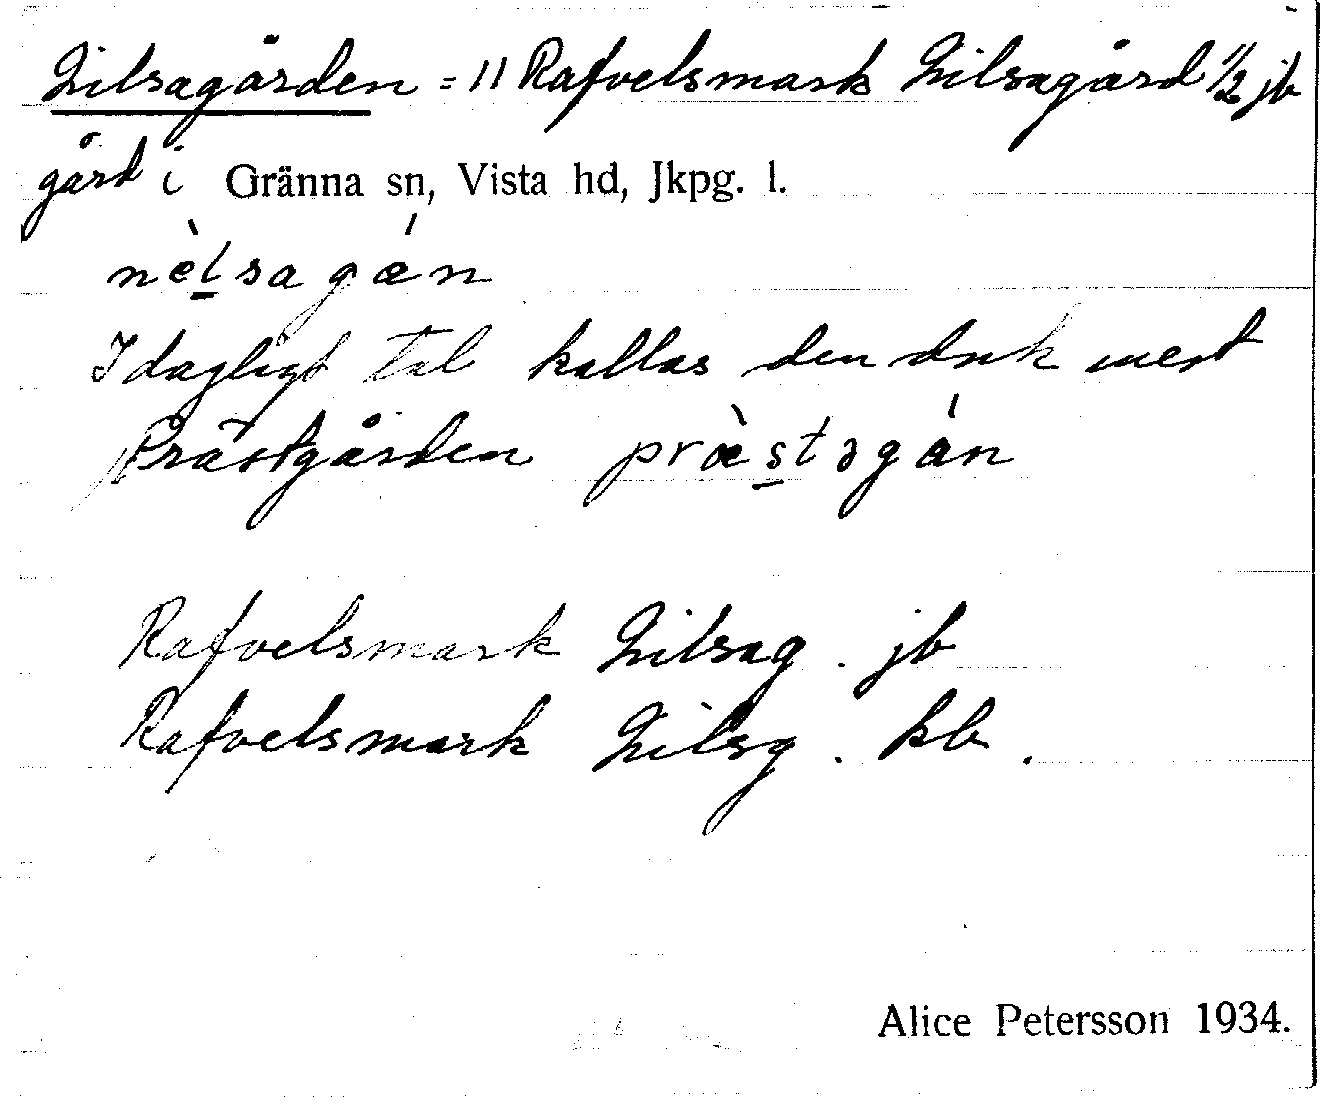 Nilsagården = 11 Rafvelsmark Nilsagård 1/2 jb
gård i Gränna sn, Vista hd, Jkpg. l.
nèlsagán
I dagligt tal kallas den dock mest
Prästgården præ̀stəgán
Rafvelsmark Nilsag. jb
Rafvelsmark Nilsg. kb.
Alice Petersson 1934.